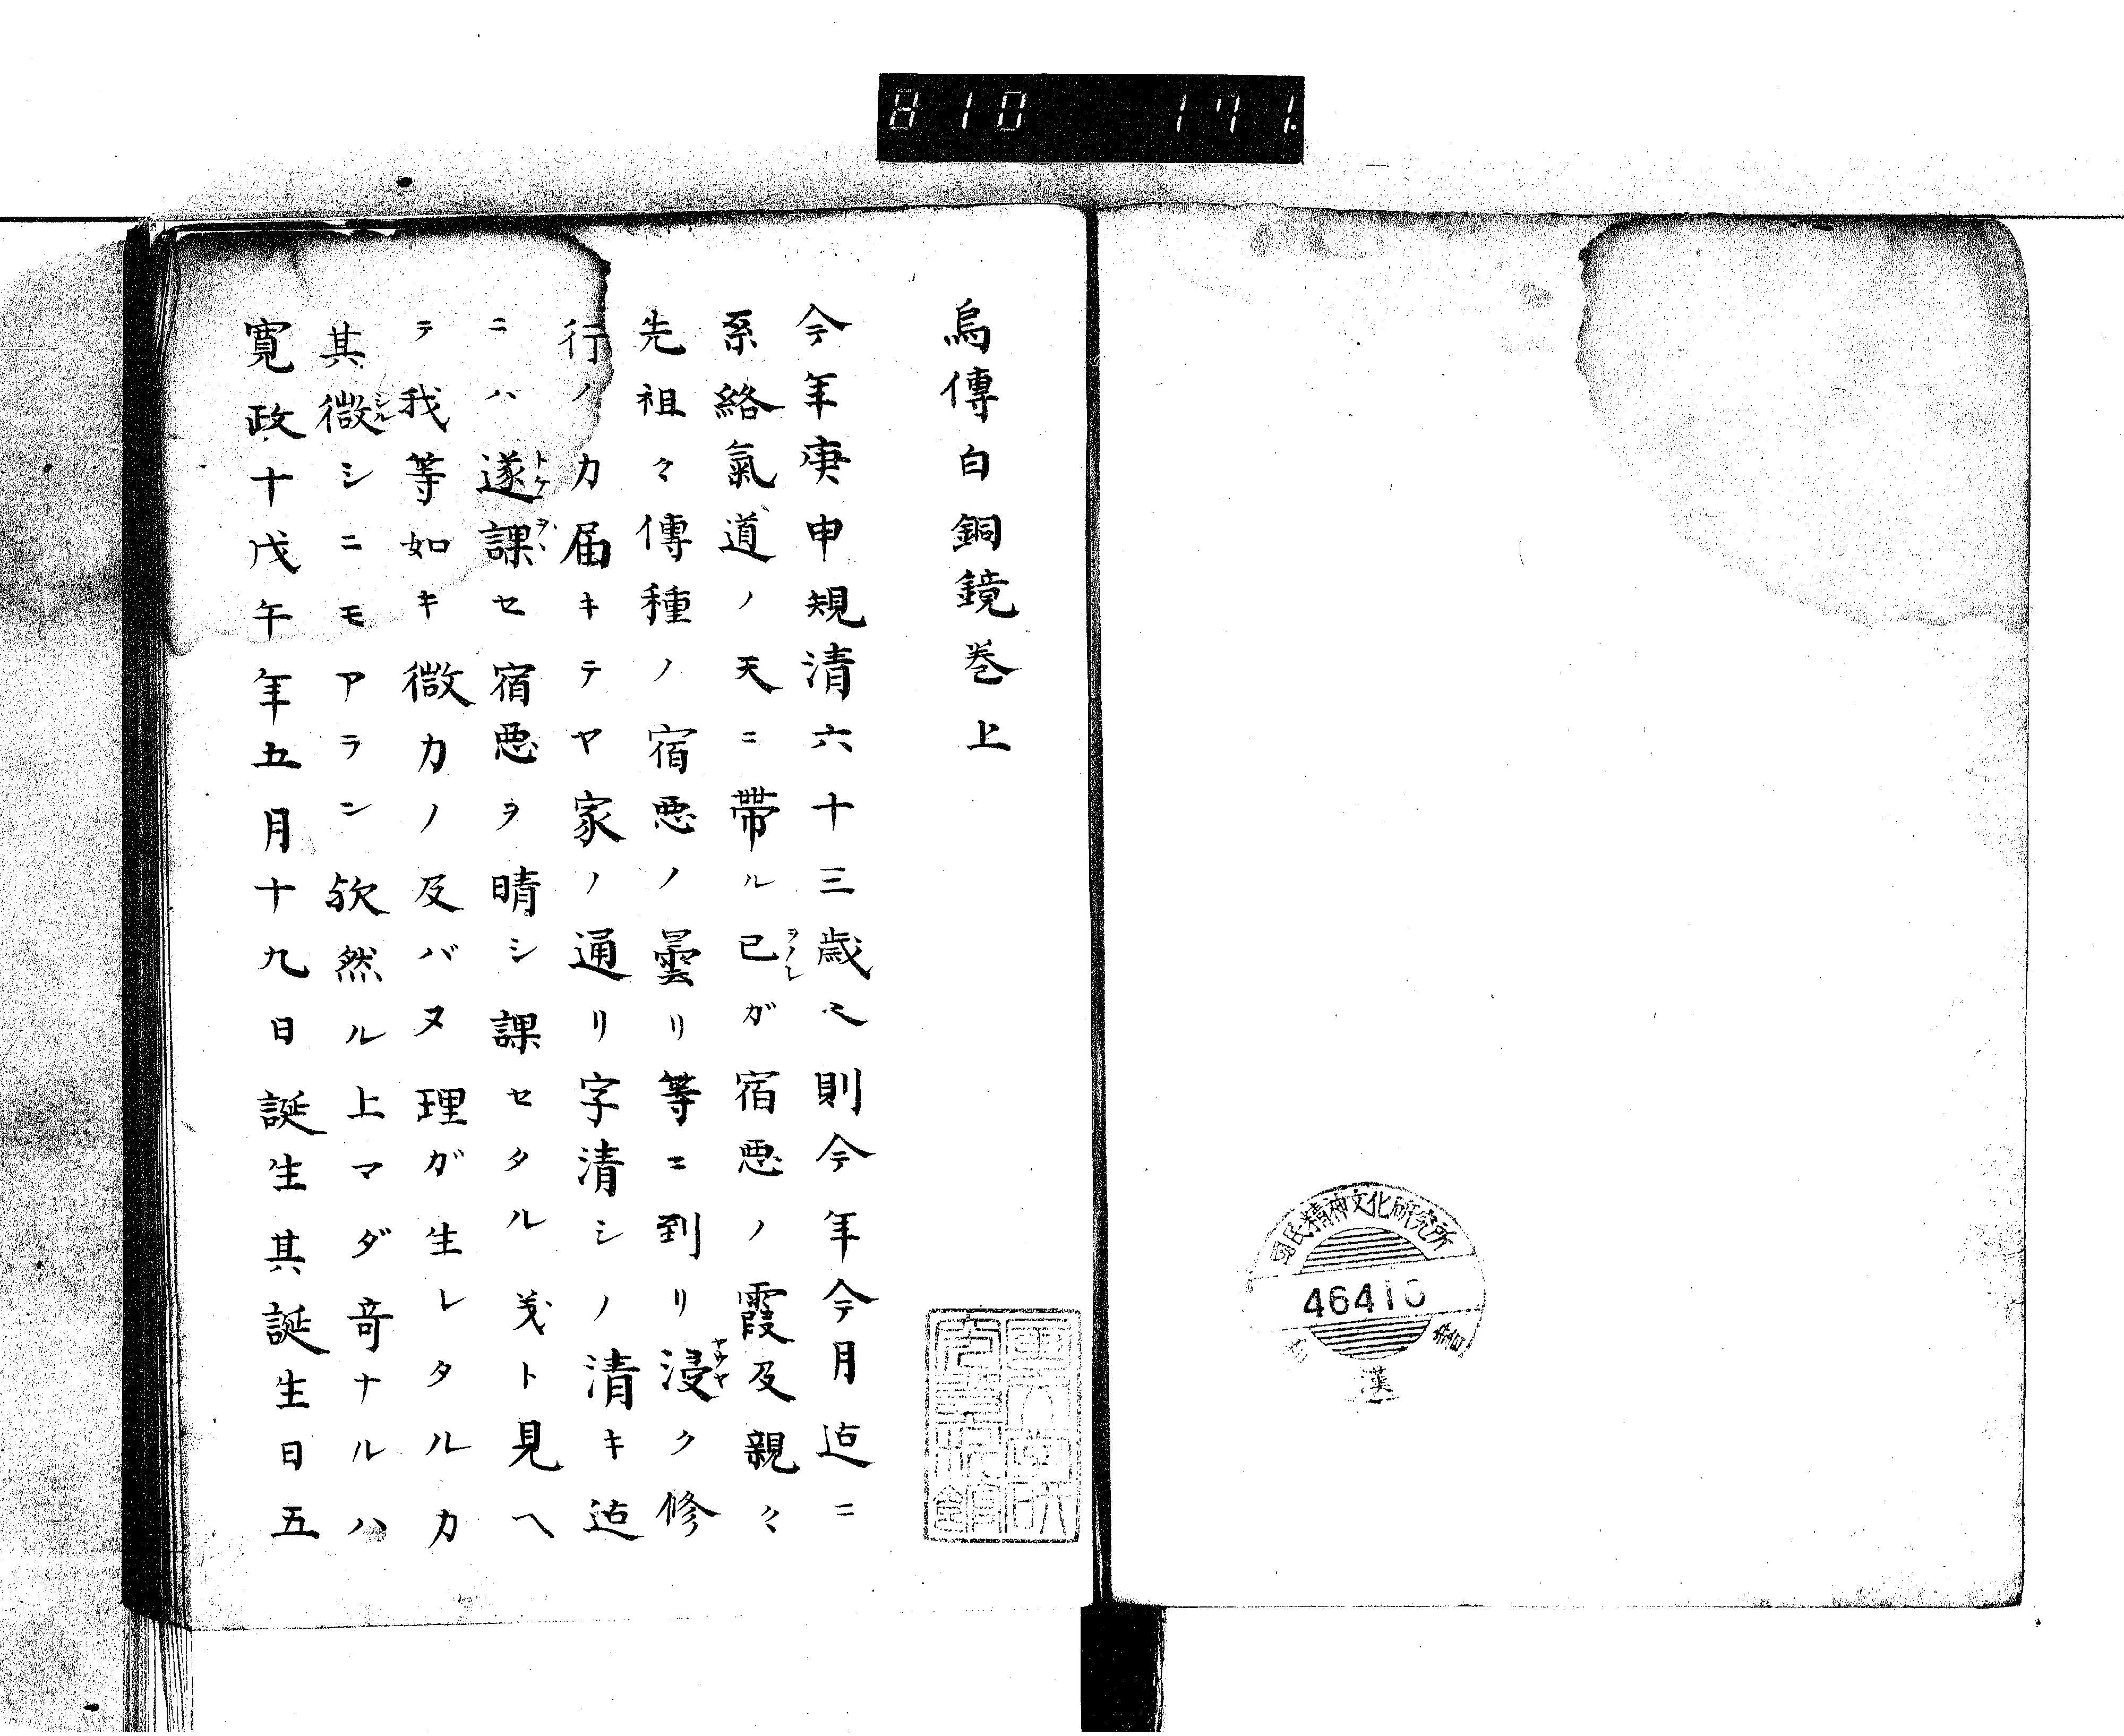 810 171.
國民精神文化研究所
漢
烏傳白銅鏡巻上
今年庚申規清六十三歳之則今年今月迠ニ
系絡氣道ノ天ニ帶ル已ヲノレガ宿悪ノ霞及親々
先祖々傳種ノ宿悪ノ曇リ等ニ到リ浸ク修
行ノカ届キテヤ家ノ通リ字清シノ清キ迠
ニハ遂トゲ課ヲヽセ宿悪ヲ晴シ課セタル戔ト見ヘ
テ我等如キ微力ノ及バヌ理ガ生レタルカ
其徴シルシニモアラン欤然ル上マダ竒ナルハ
寛政十戊午年五月十九日誕生其誕生日五